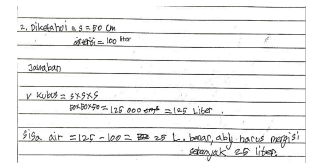 2. Diketahoi = s = 50 cm
diisi = 100 liter
Jawaban
V kubus = s x s x s
50x50x50 = 125 000 cm³ = 125 Liter.
sisa air = 125 - 100 = 25 L. benar, abj harus mengisi
sebanyak 25 liter.